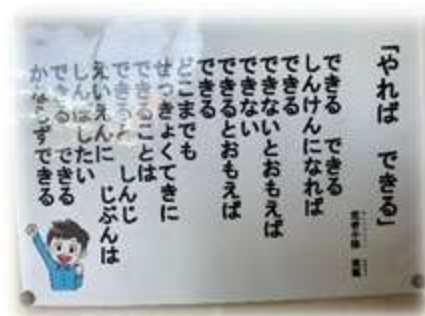 「やれば　できる」
できる　できる
しんけんになれば
できる
できないとおもえば
できない
できるとおもえば
できる
どこまでも
せっきょくてきに
できることは
できると　しんじ
えいえんに　じぶんは
しんぽしたい
できる　できる
かならずできる